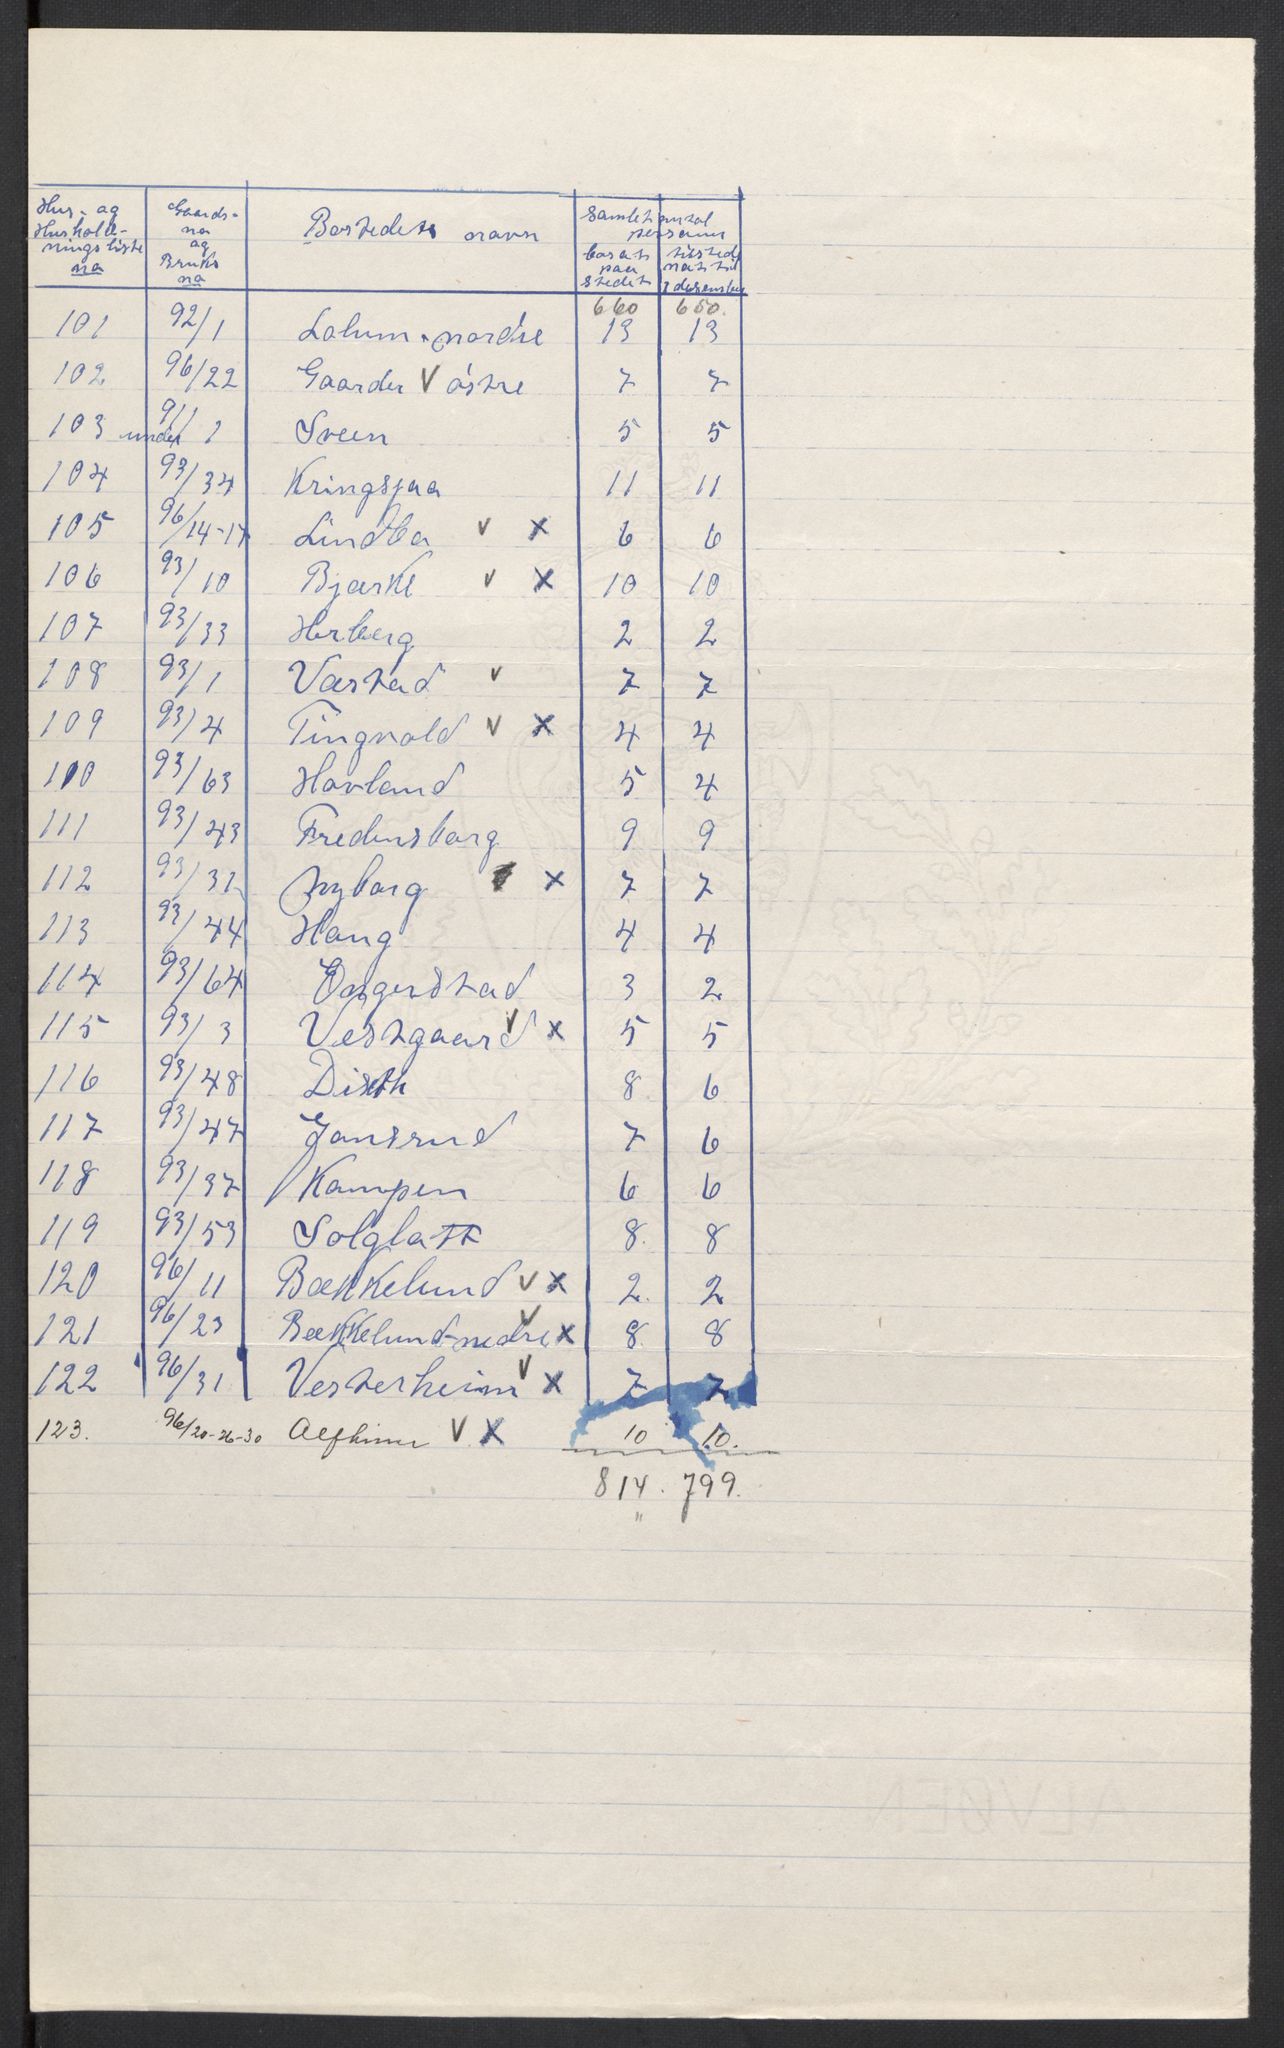 Hus- og Husholdningsliste no | Gaards- no og Bruks no | Bostedets navn | Samlet antal personer
bosat paa stedet | tilstede nat til 1 desember
660 650.
101 92/1 Lolum-nordre 13 13
102 96/22 Gaarder V østre 7 7
103 under 91/1 1 Sveen 5 5
104 93/34 Kringsjaa 11 11
105 96/14-17 Lindbo V X 6 6
106 93/10 Bjerke V X 10 10
107 93/33 Herberg 2 2
108 93/1 Vestad V 7 7
109 93/4 Tingvold V X 4 4
110 93/63 Hovland 5 4
111 93/43 Fredensborg 9 9
112 93/32 Nyborg X 7 7
113 93/44 Haug 4 4
114 93/64 3 2
115 93/3 Vestgaard V X 5 5
116 93/48 Diseth 8 6
117 93/47 Jonsrud 7 6
118 93/37 Kampen 6 6
119 93/53 Solglatt 8. 8
120 96/11 Bækkelund V X 2. 2
121 96/23 Bækkelund-nedre V X 8. 8
122 96/31 Vesterheim V X 7 7
123. 96/20-26-30 Alfheim V X 10 10.
814. 799.
ALVØEN